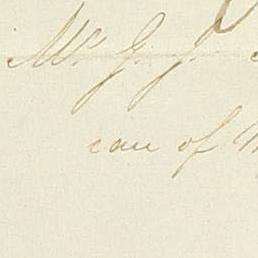 Mr. G. J.
care of